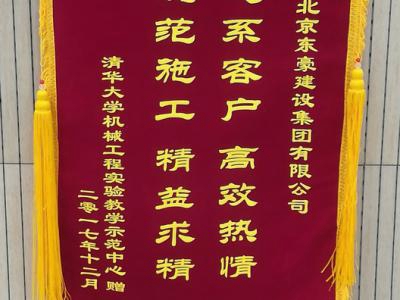 北京东豪建设集团有限公司
系客户 高效热情
范施工 精益求精
清华大学机械工程实验教学示范中心 赠
二零一七年十二月